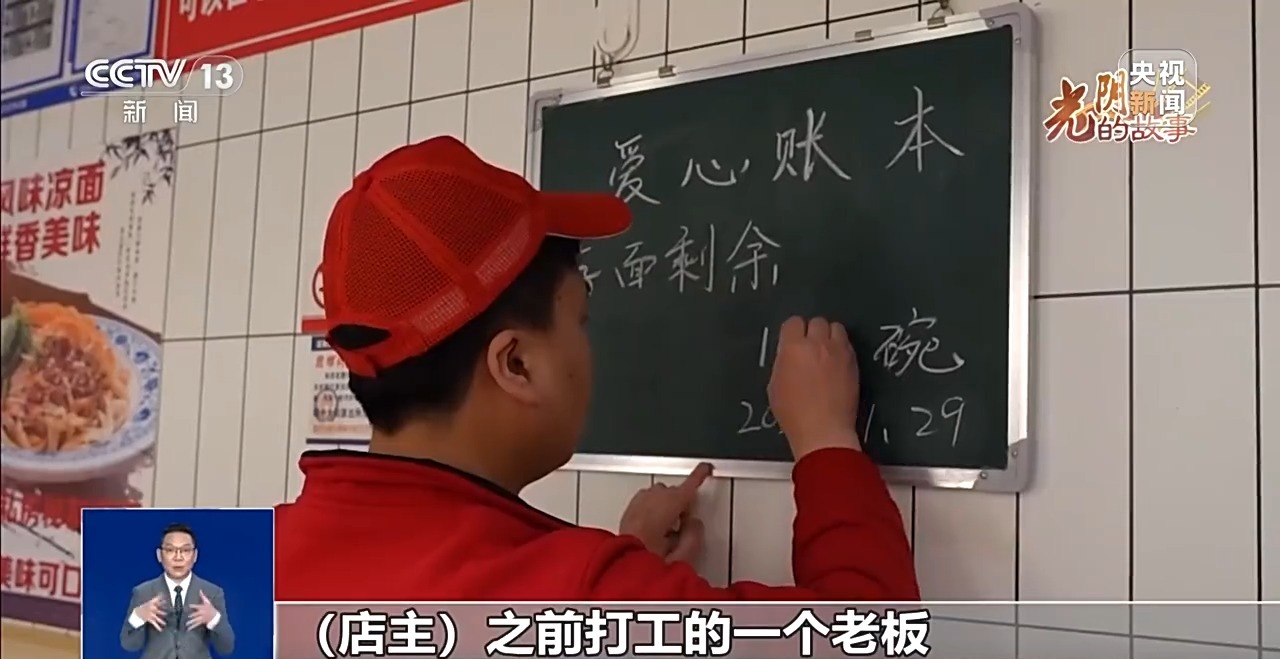 可以在
CCTV 13
新闻
央视
新闻
光阴
的故事
风味凉面
鲜香美味
美味可口
爱心账本
面剩余
1 碗
20 1.29
（店主）之前打工的一个老板